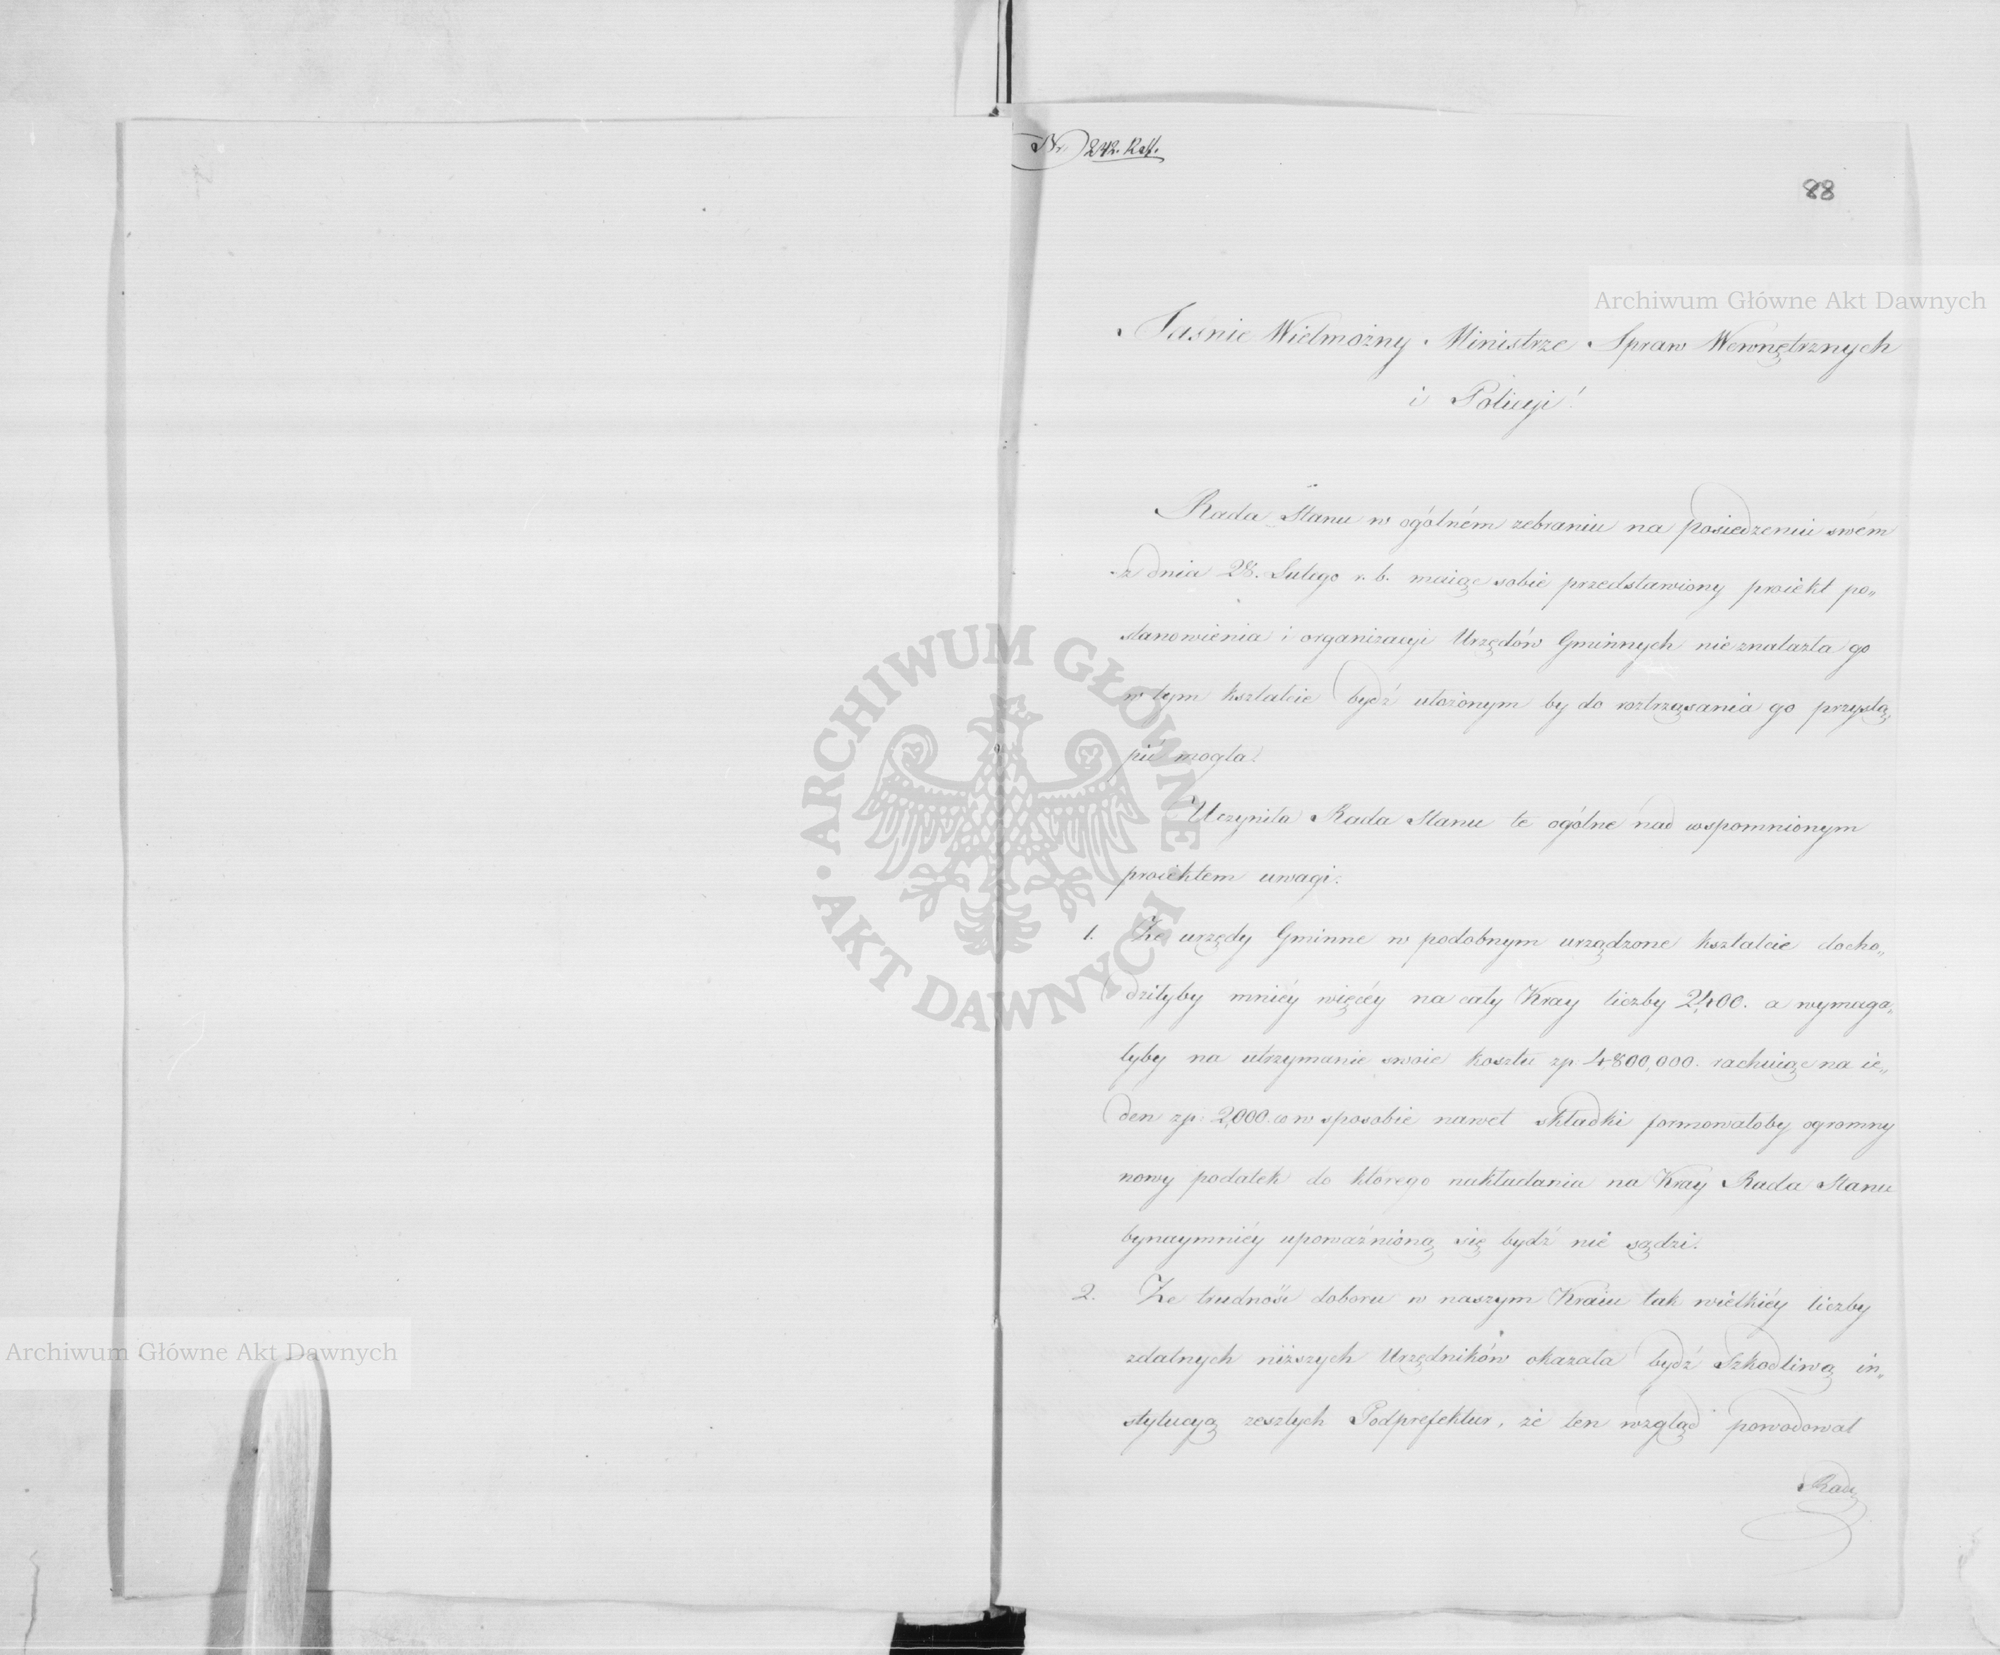 Nr. 242.
88
Archiwum Główne Akt Dawnych
Jaśnie Wielmożny Ministrze Spraw Wewnętrznych
i Policyi!
Rada Stanu w ogólném zebraniu na posiedzeniu swém
z dnia 28. Lutego r. b. maiąc sobie przedstawiony proiekt po„
stanowienia i organizacyi Urzędów Gminnych nieznalazła go
w tym kształcie bydź ułożonym by do roztrząsania go przystą„
pić mogła.
Uczyniła Rada Stanu te ogólne nad wspomnionym
proiektem uwagi.
1. Że urzędy Gminne w podobnym urządzone kształcie docho„
dziłyby mniéy więcéy na cały Kray liczby 2,400. a wymaga„
łyby na utrzymanie swoie kosztu zp. 4,800,000. rachuiąc na ie„
den zp: 2,000. co w sposobie nawet składki formowałoby ogromny
nowy podatek do którego nakładania na Kray Rada Stanu
bynaymniéy upoważnioną się bydź nie sądzi.
2. Że trudność doboru w naszym Kraiu tak wielkiéy liczby
zdatnych niższych Urzędników okazała bydź Szkodliwą in„
stytucyą zeszłych Podprefektur, że ten wzgląd powodował
Radę
ARCHIWUM GŁÓWNE
AKT DAWNYCH
Archiwum Główne Akt Dawnych